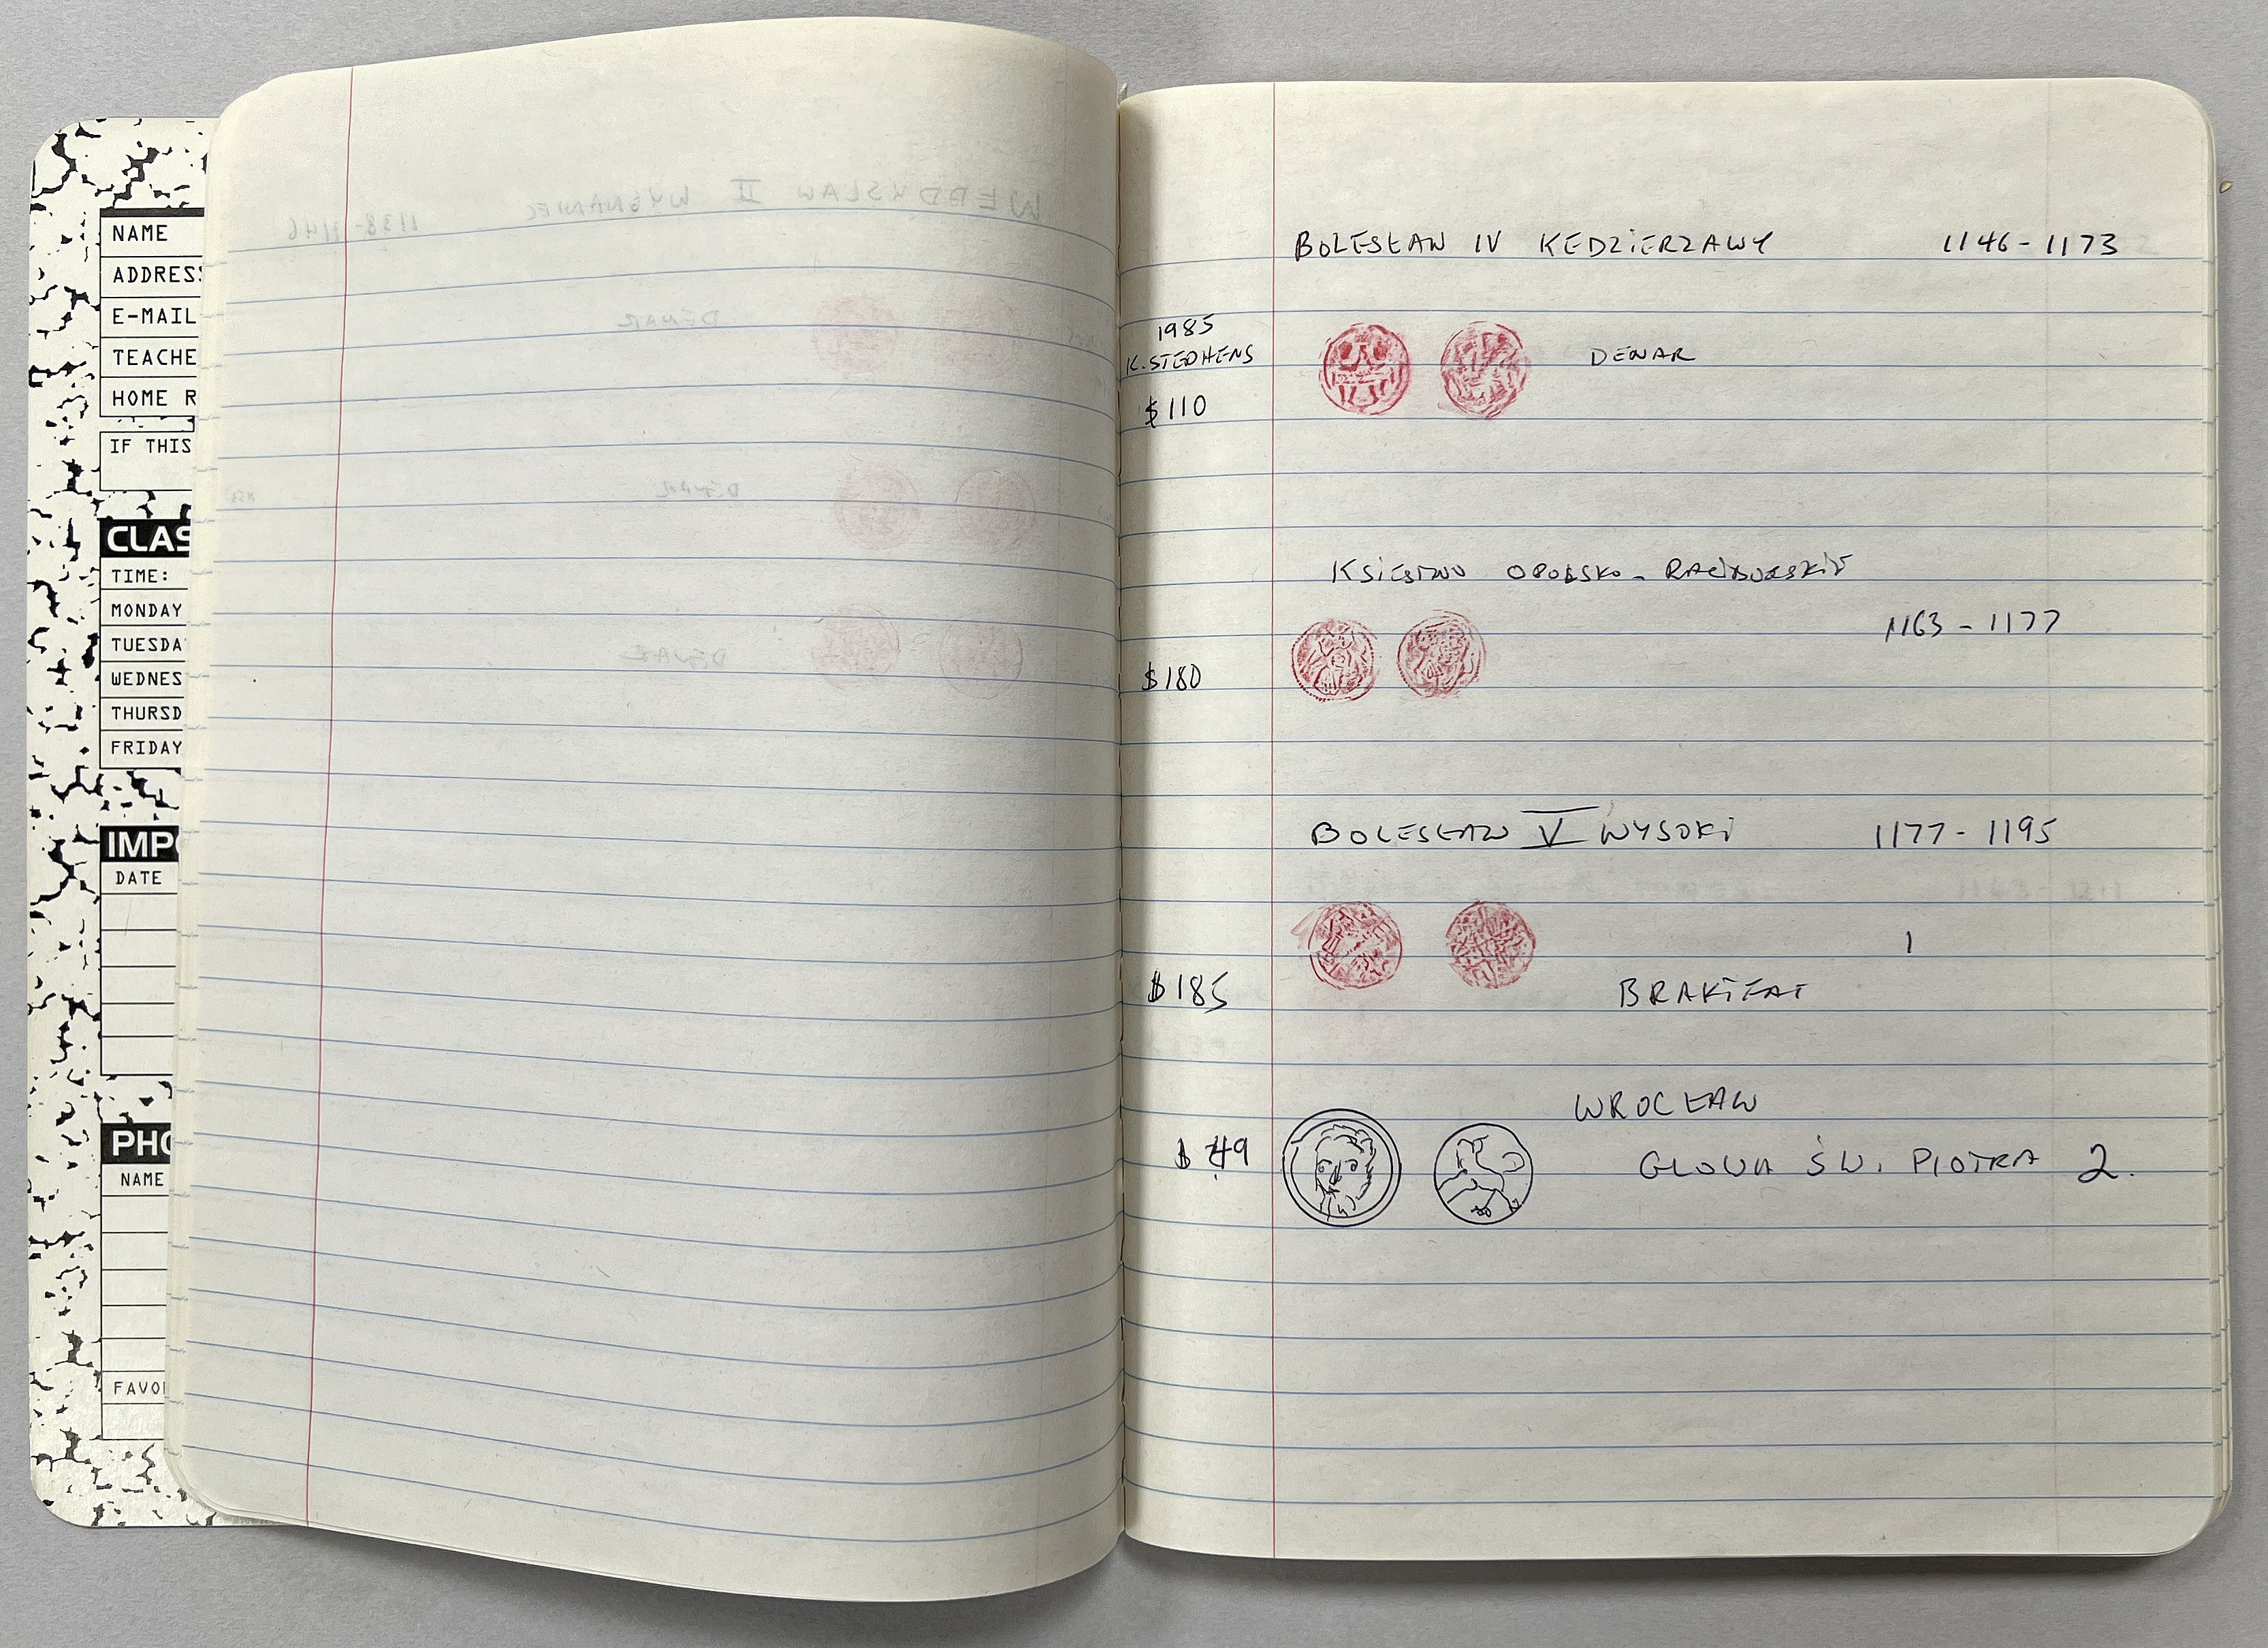 NAME
ADDRESS
E-MAIL
TEACHE
HOME R
IF THIS
CLAS
TIME:
MONDAY
TUESDA
WEDNES
THURSD
FRIDAY
IMPO
DATE
PHO
NAME
FAVO
WŁADYSŁAW II WYGNANIEC
1138-1146
DENAR
DENAR
DENAR
BOLESŁAW IV KEDZIERZAWY 1146-1173
1985
K. STEPHENS
$110
DENAR
KSIESTWO OPOLSKO-RACIBORSKIE
1163-1177
$180
BOLESŁAW V WYSOKI 1177-1195
1
$185
BRAKTEAT
WROCŁAW
$49
GŁOWA ŚW. PIOTRA 2.